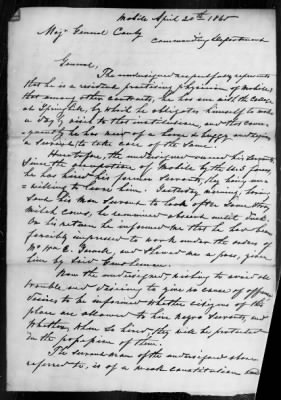 Mobile April 20th 1865
Maj. General Canby
Commanding Department
General,
The undersigned respectfully represents
that he is a resident practising physician of Mobile,
that among other contracts, he has one with the College
at Spring Hill, by which he obligates himself to make
a daily visit to that institution, and that conse-
quently he has need of a horse & buggy and of
a servant to take care of the same.
Heretofore, the undersigned owned his servants,
Since the occupation of Mobile by the U.S. forces,
he has hired his former servants, they being
willing to serve him. Yesterday morning, having
sent his man servant to look after some stray
milch cows, he remained absent until dark.
On his return he informed me that he has been
forcibly impressed to work under the orders of
Mr Wm E. and showed me a pass, given
him by said Gentleman.
Now the undersigned, wishing to avoid all
trouble and desiring to give no cause of offence
desires to be informed whether citizens of this
place are allowed to hire negro servants, and
whether, when so hired, they will be protected
in the possession of them.
The servant man of the undersigned above
referred to, is of a weak constitution and